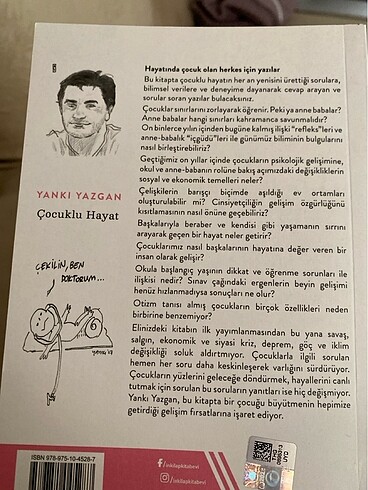 Hayatında çocuk olan herkes için yazılar
Bu kitapta çocuklu hayatın her an yenisini ürettiği sorulara,
bilimsel verilere ve deneyime dayanarak cevap arayan ve
sorular soran yazılar bulacaksınız.
Çocuklar sınırlarını zorlayarak öğrenir. Peki ya anne babalar?
Anne babalar hangi sınırları kahramanca savunmalıdır?
On binlerce yılın içinden bugüne kalmış ilişki "refleks"leri ve
anne-babalık "içgüdü"leri ile günümüz biliminin bulgularını
nasıl birleştirebiliriz?
Geçtiğimiz on yıllar içinde çocukların psikolojik gelişimine,
okul ve anne-babanın rolüne bakış açımızdaki değişikliklerin
sosyal ve ekonomik temelleri neler?
Çelişkilerin barışçı biçimde aşıldığı ev ortamları
oluşturulabilir mi? Cinsiyetçiliğin gelişim özgürlüğünü
kısıtlamasının nasıl önüne geçebiliriz?
Başkalarıyla beraber ve kendisi gibi yaşamanın sırrını
arayarak geçen bir hayat neler getirir?
Çocuklarımız nasıl başkalarının hayatına değer veren bir
insan olarak gelişir?
Okula başlangıç yaşının dikkat ve öğrenme sorunları ile
ilişkisi nedir? Sınav çağındaki ergenlerin beyin gelişimi
henüz hızlanmadıysa sonuçları ne olur?
Otizm tanısı almış çocukların birçok özellikleri neden
birbirine benzemiyor?
Elinizdeki kitabın ilk yayımlanmasından bu yana savaş,
salgın, ekonomik ve siyasi kriz, deprem, göç ve iklim
değişikliği soluk aldırtmıyor. Çocuklarla ilgili sorulan
hemen her soru daha keskinleşerek varlığını sürdürüyor.
Çocukların yüzlerini geleceğe döndürmek, hayallerini canlı
tutmak için sorulan bu soruların yanıtları ise hiç değişmiyor.
Yankı Yazgan, bu kitapta bir çocuğu büyütmenin hepimize
getirdiği gelişim fırsatlarına işaret ediyor.
YANKI YAZGAN
Çocuklu Hayat
ÇEKİLİN, BEN
DOKTORUM...
ISBN 978-975-10-4528-7
/inkilapkitabevi
/inkilapkitabevi